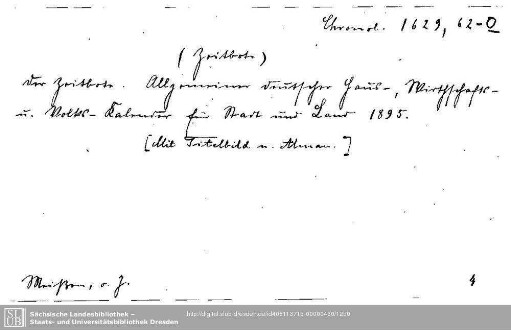 Chronol. 1629, 62-0
(Zeitbote)
Der Zeitbote. Allgemeiner deutscher Haus-, Wirthschafts-
u. Volks-Kalender für Stadt und Land 1895.
[Mit Titelbild u. Alman.]
Meißen, o. J.
4
Sächsische Landesbibliothek –
Staats- und Universitätsbibliothek Dresden